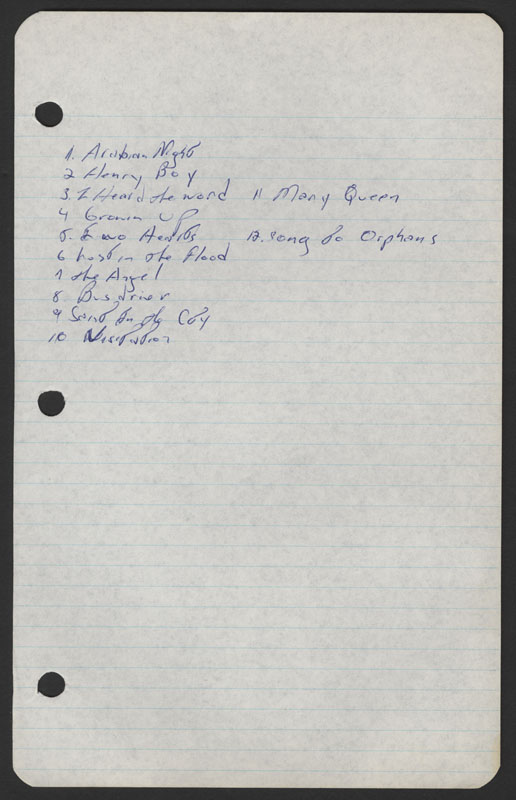 1. Arabian Night
2 Henry Boy
3. I Heard the word
4 Growin up
5. Two Hearts
6 Lost in the flood
7 the Angel
8 Bus driver
9 Saint in the City
10 Visitation
11 Mary Queen
12. song to Orphans